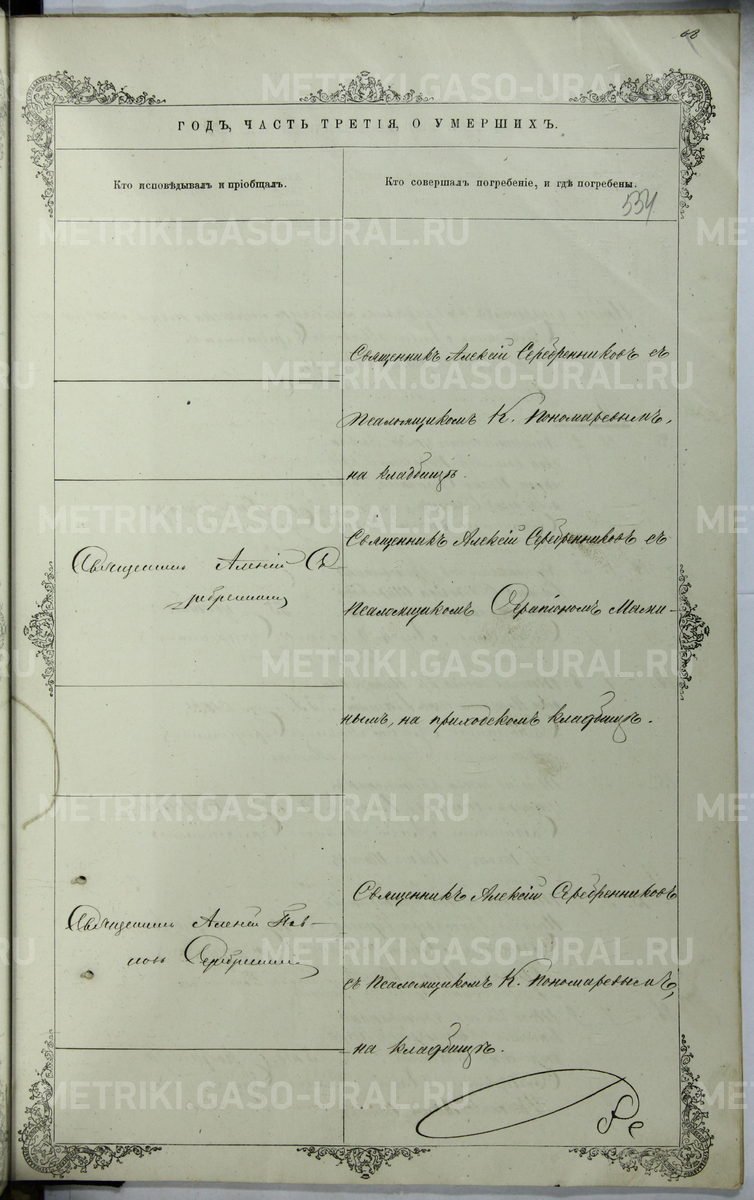 ГОДЪ, ЧАСТЬ ТРЕТІЯ, О УМЕРШИХЪ.
Кто исповѣдывалъ и пріобщалъ.
Кто совершалъ погребеніе, и гдѣ погребены.
534
Священникъ Алексій Серебренниковъ съ
псаломщикомъ К. Пономаревымъ,
на кладбищѣ.
Священникъ Алексій Се
ребренниковъ
Священникъ Алексій Серебренниковъ съ
псаломщикомъ Серапіономъ Мами-
нымъ, на приходскомъ кладбищѣ.
Священникъ Алексій Пав-
ловъ Серебренниковъ
Священникъ Алексій Серебренниковъ
съ псаломщикомъ К. Пономаревымъ,
на кладбищѣ.
METRIKI.GASO-URAL.RU